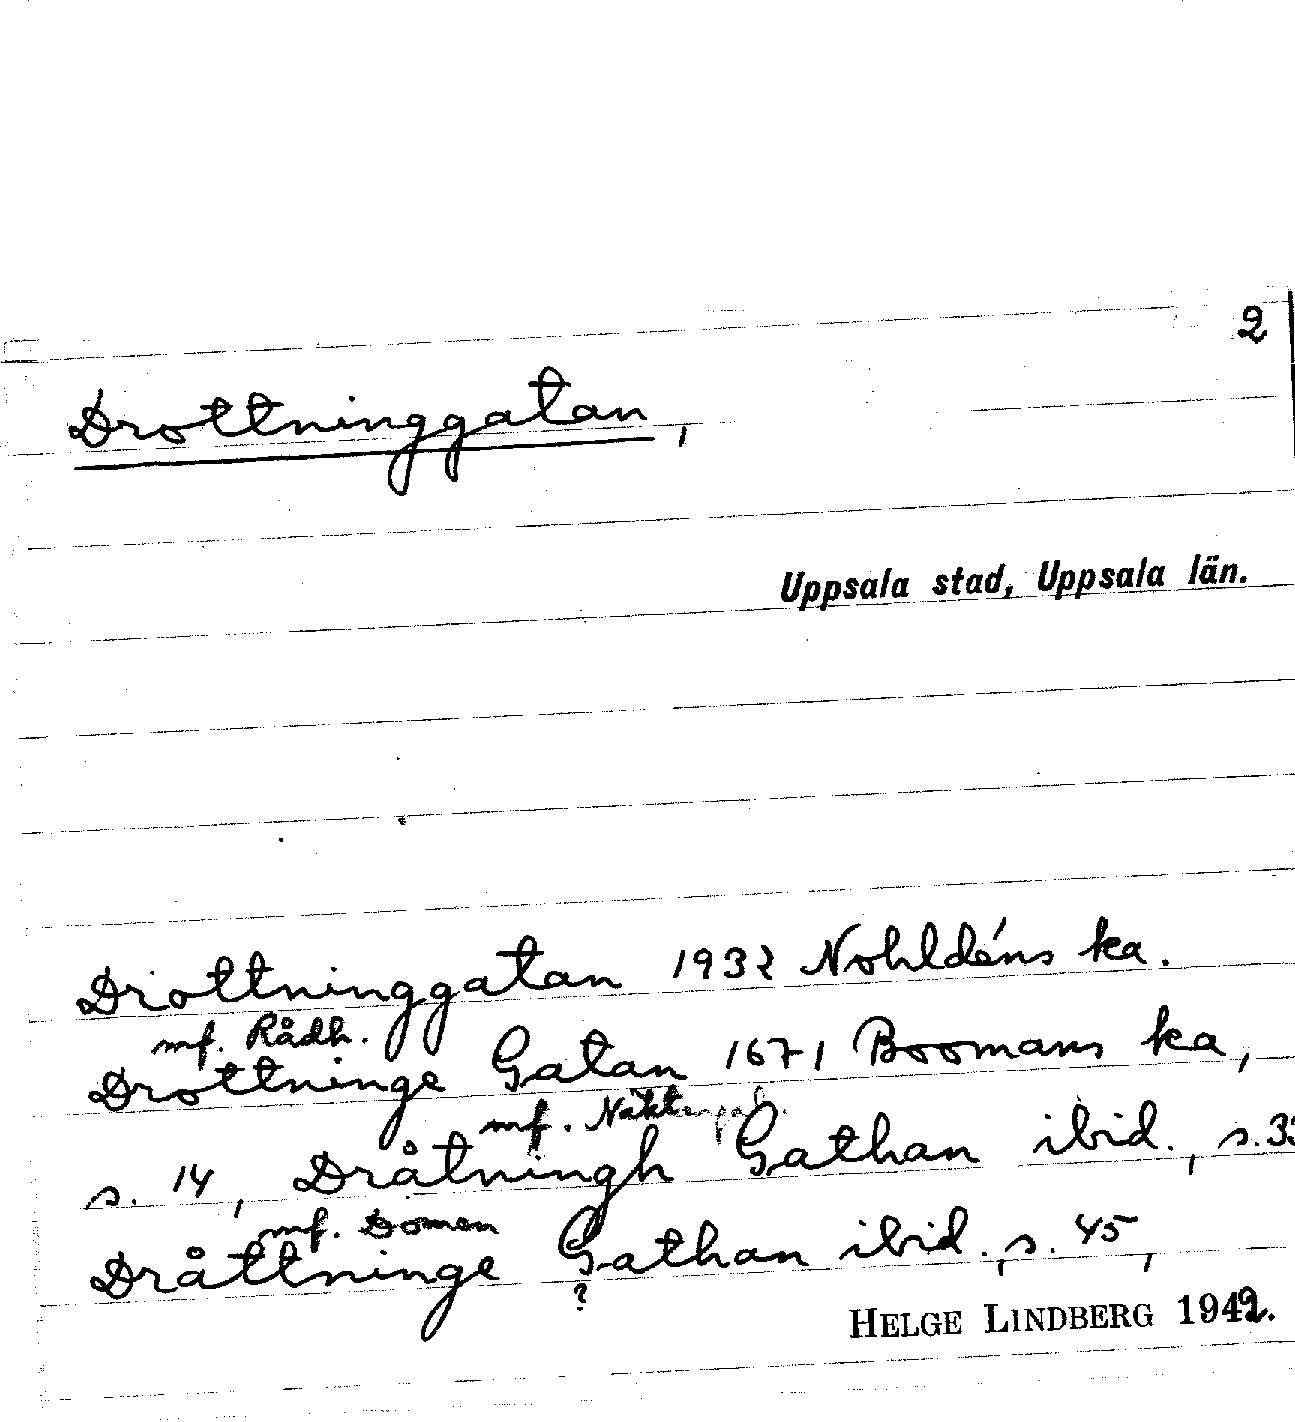 2
Drottninggatan,
Uppsala stad, Uppsala län.
Drottninggatan 1932 Nohldéns ka.
mf. Rådh.
Drottninge Gatan 1671 Boomans ka,
mf.
s. 14, Dråtningh Gathan ibid., s.
mf. Domen
Dråttninge Gathan ibid., s. 45,
?
HELGE LINDBERG 1942.